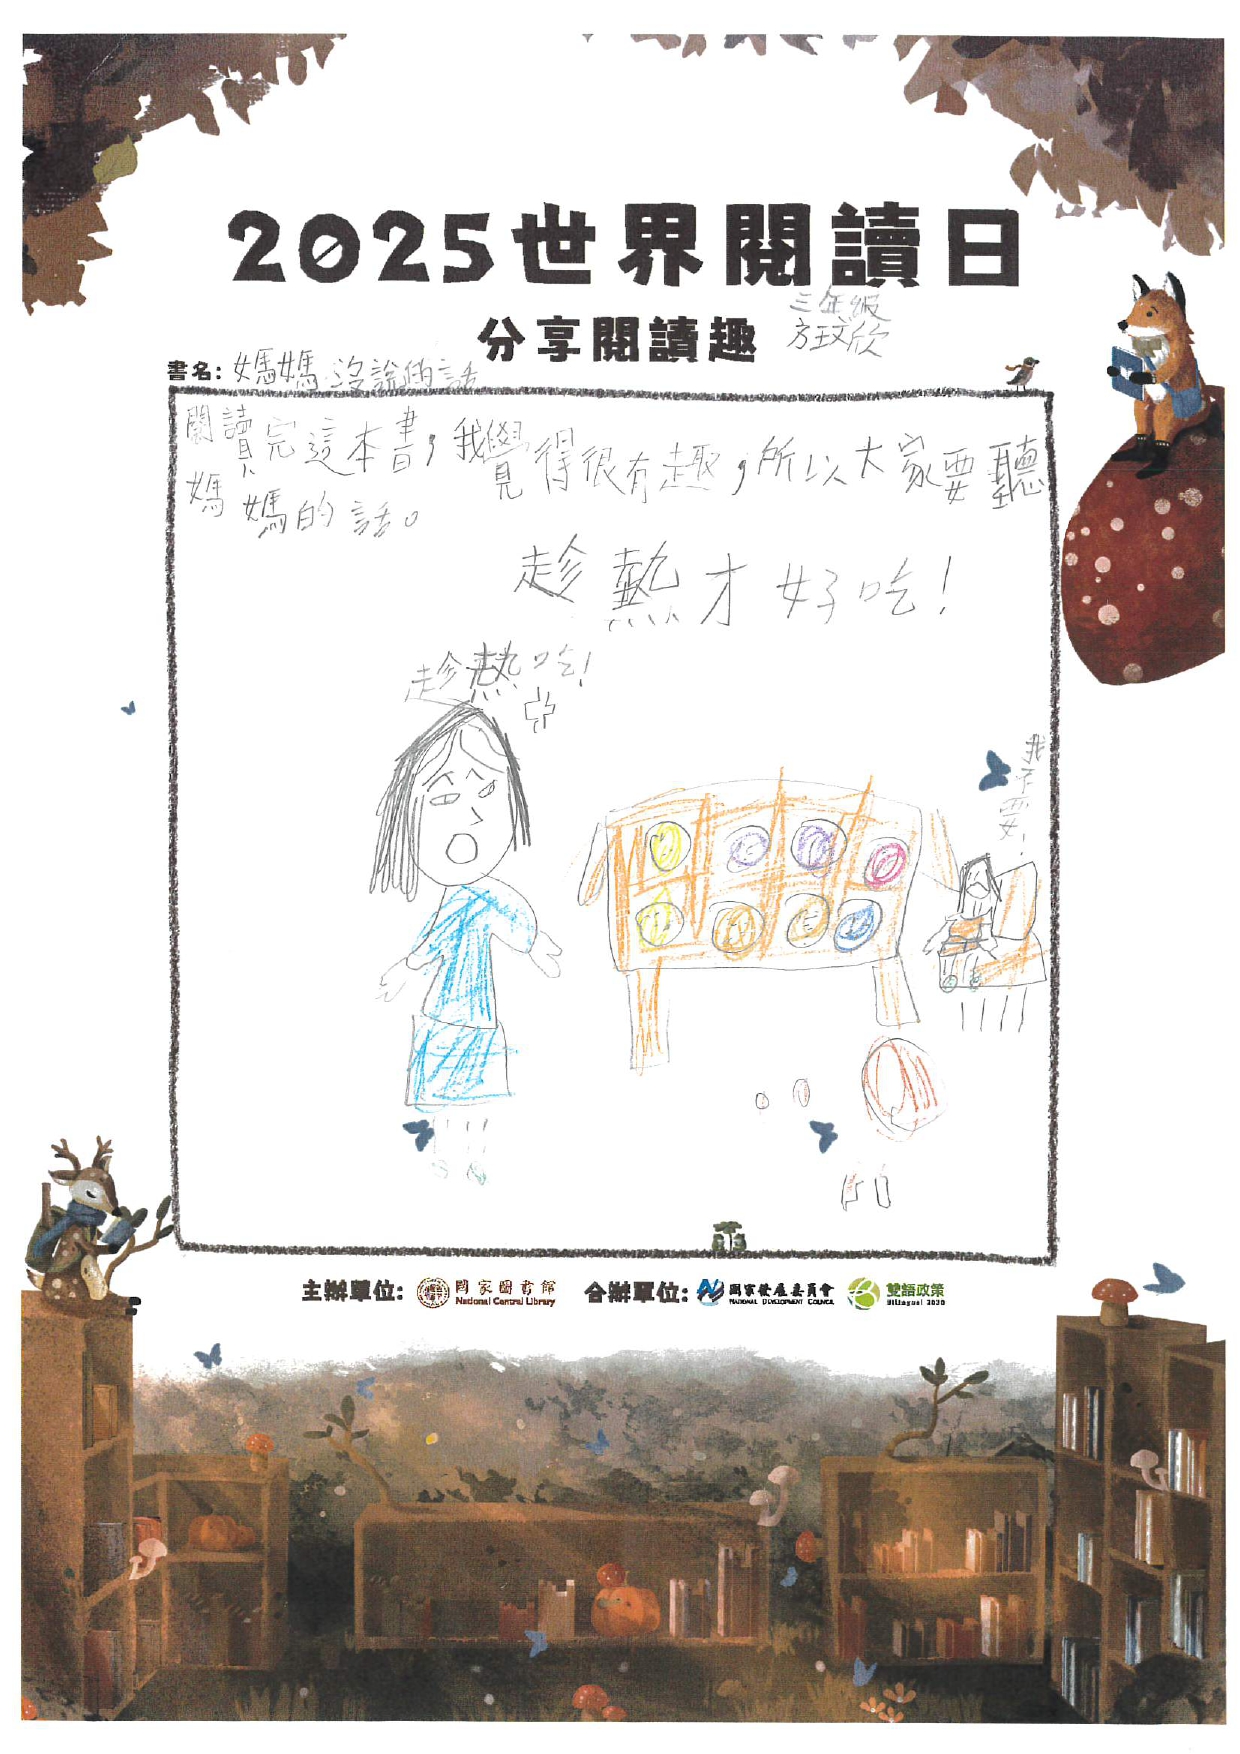 2025世界閱讀日
分享閱讀趣
三年級
方玟欣
書名：媽媽沒說的話
閱讀完這本書，我覺得很有趣，所以大家要聽
媽媽的話。
趁熱才好吃！
趁熱吃！
我不要！
主辦單位： 國家圖書館 National Central Library 合辦單位： 國家發展委員會 NATIONAL DEVELOPMENT COUNCIL 雙語政策 Bilingual 2030